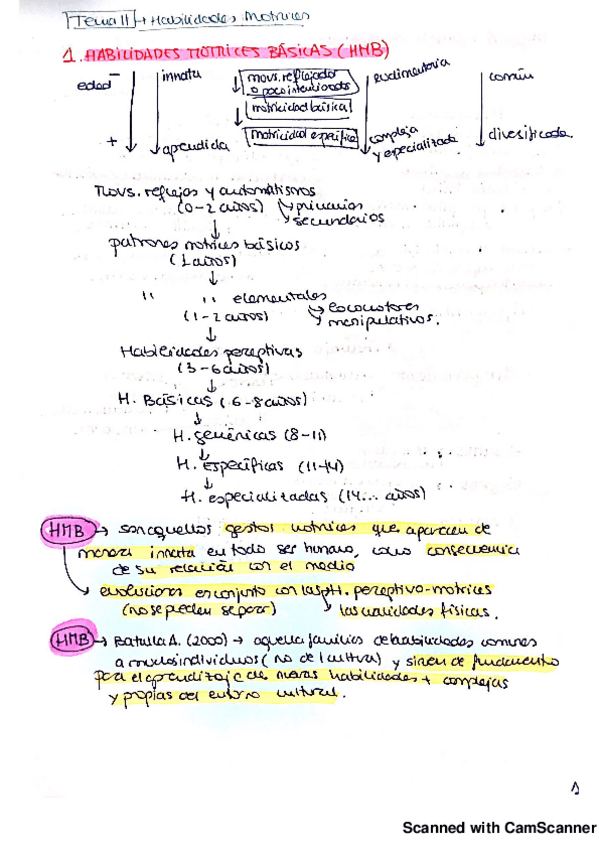 Tema 11 → Habilidades Motrices
1. HABILIDADES MOTRICES BÁSICAS (HMB)
edad - +
innata
aprendida
movs. reflejados
o poco intencionados
motricidad básica
motricidad específica
rudimentaria
compleja
y especializada
común
diversificada.
Movs. reflejos y automatismos
(0-2 años) → primarios
→ secundarios
patrones motrices básicos
(1 años)
" " elementales
(1-2 años) → locomotores
y manipulativos.
Habilidades perceptivas
(3-6 años)
H. Básicas (6-8 años)
H. genéricas (8-11)
H. específicas (11-14)
H. especializadas (14... años)
HMB → son aquellos gestos motrices que aparecen de
manera innata en todo ser humano, como consecuencia
de su relación con el medio
→ evolucionan en conjunto con las H. perceptivo-motrices
(no se pueden separar) → las cualidades físicas.
HMB → Batalla A. (2000) → aquella familias de habilidades comunes
a muchos individuos (no de 1 cultura) y sirven de fundamento
para el aprendizaje de nuevas habilidades + complejas
y propias del entorno cultural.
1
Scanned with CamScanner